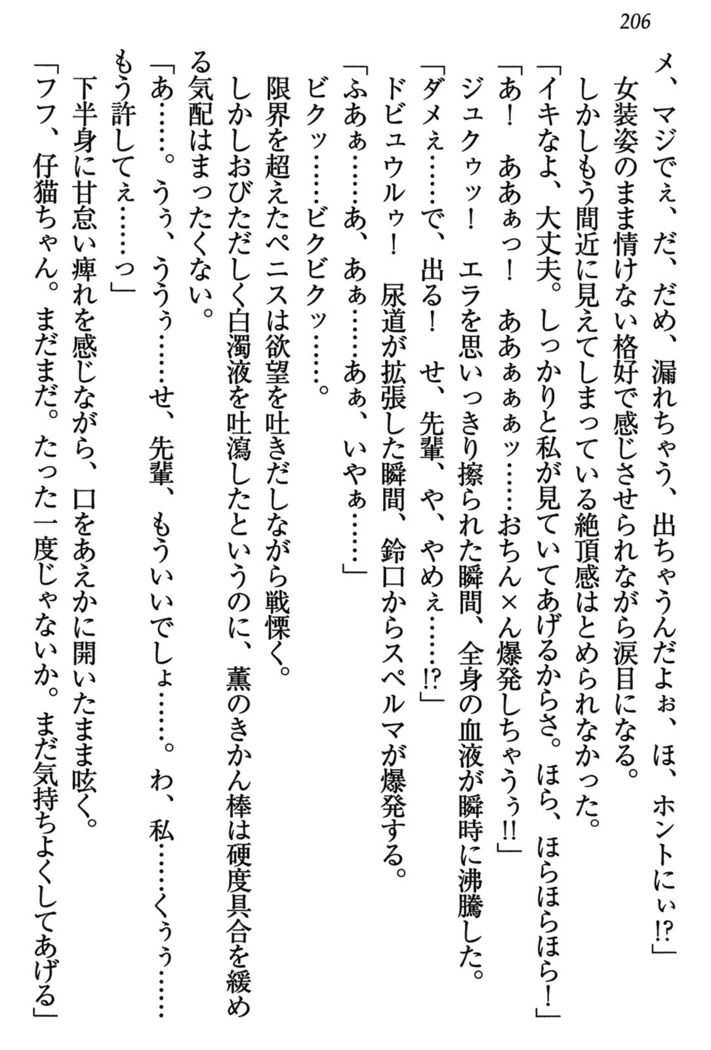 206
メ、マジでぇ、だ、だめ、漏れちゃう、出ちゃうんだよぉ、ほ、ホントにぃ!?」
女装姿のまま情けない格好で感じさせられながら涙目になる。
しかしもう間近に見えてしまっている絶頂感はとめられなかった。
「イキなよ、大丈夫。しっかりと私が見ていてあげるからさ。ほら、ほらほらほら！」
「あ！　ああぁっ！　ああぁぁぁッ……おちん×ん爆発しちゃうぅ!!」
ジュクゥッ！　エラを思いっきり擦られた瞬間、全身の血液が瞬時に沸騰した。
「ダメぇ……で、出る！　せ、先輩、や、やめぇ……!?」
ドビュウルゥ！　尿道が拡張した瞬間、鈴口からスペルマが爆発する。
「ふあぁ……あ、あぁ……あぁ、いやぁ……」
ビクッ……ビクビクッ……。
限界を超えたペニスは欲望を吐きだしながら戦慄く。
しかしおびただしく白濁液を吐瀉したというのに、薫のきかん棒は硬度具合を緩め
る気配はまったくない。
「あ……。うぅ、ううぅ……せ、先輩、もういいでしょ……。わ、私……くぅぅ……
もう許してぇ……っ」
下半身に甘怠い痺れを感じながら、口をあえかに開いたまま呟く。
「フフ、仔猫ちゃん。まだまだ。たった一度じゃないか。まだ気持ちよくしてあげる」